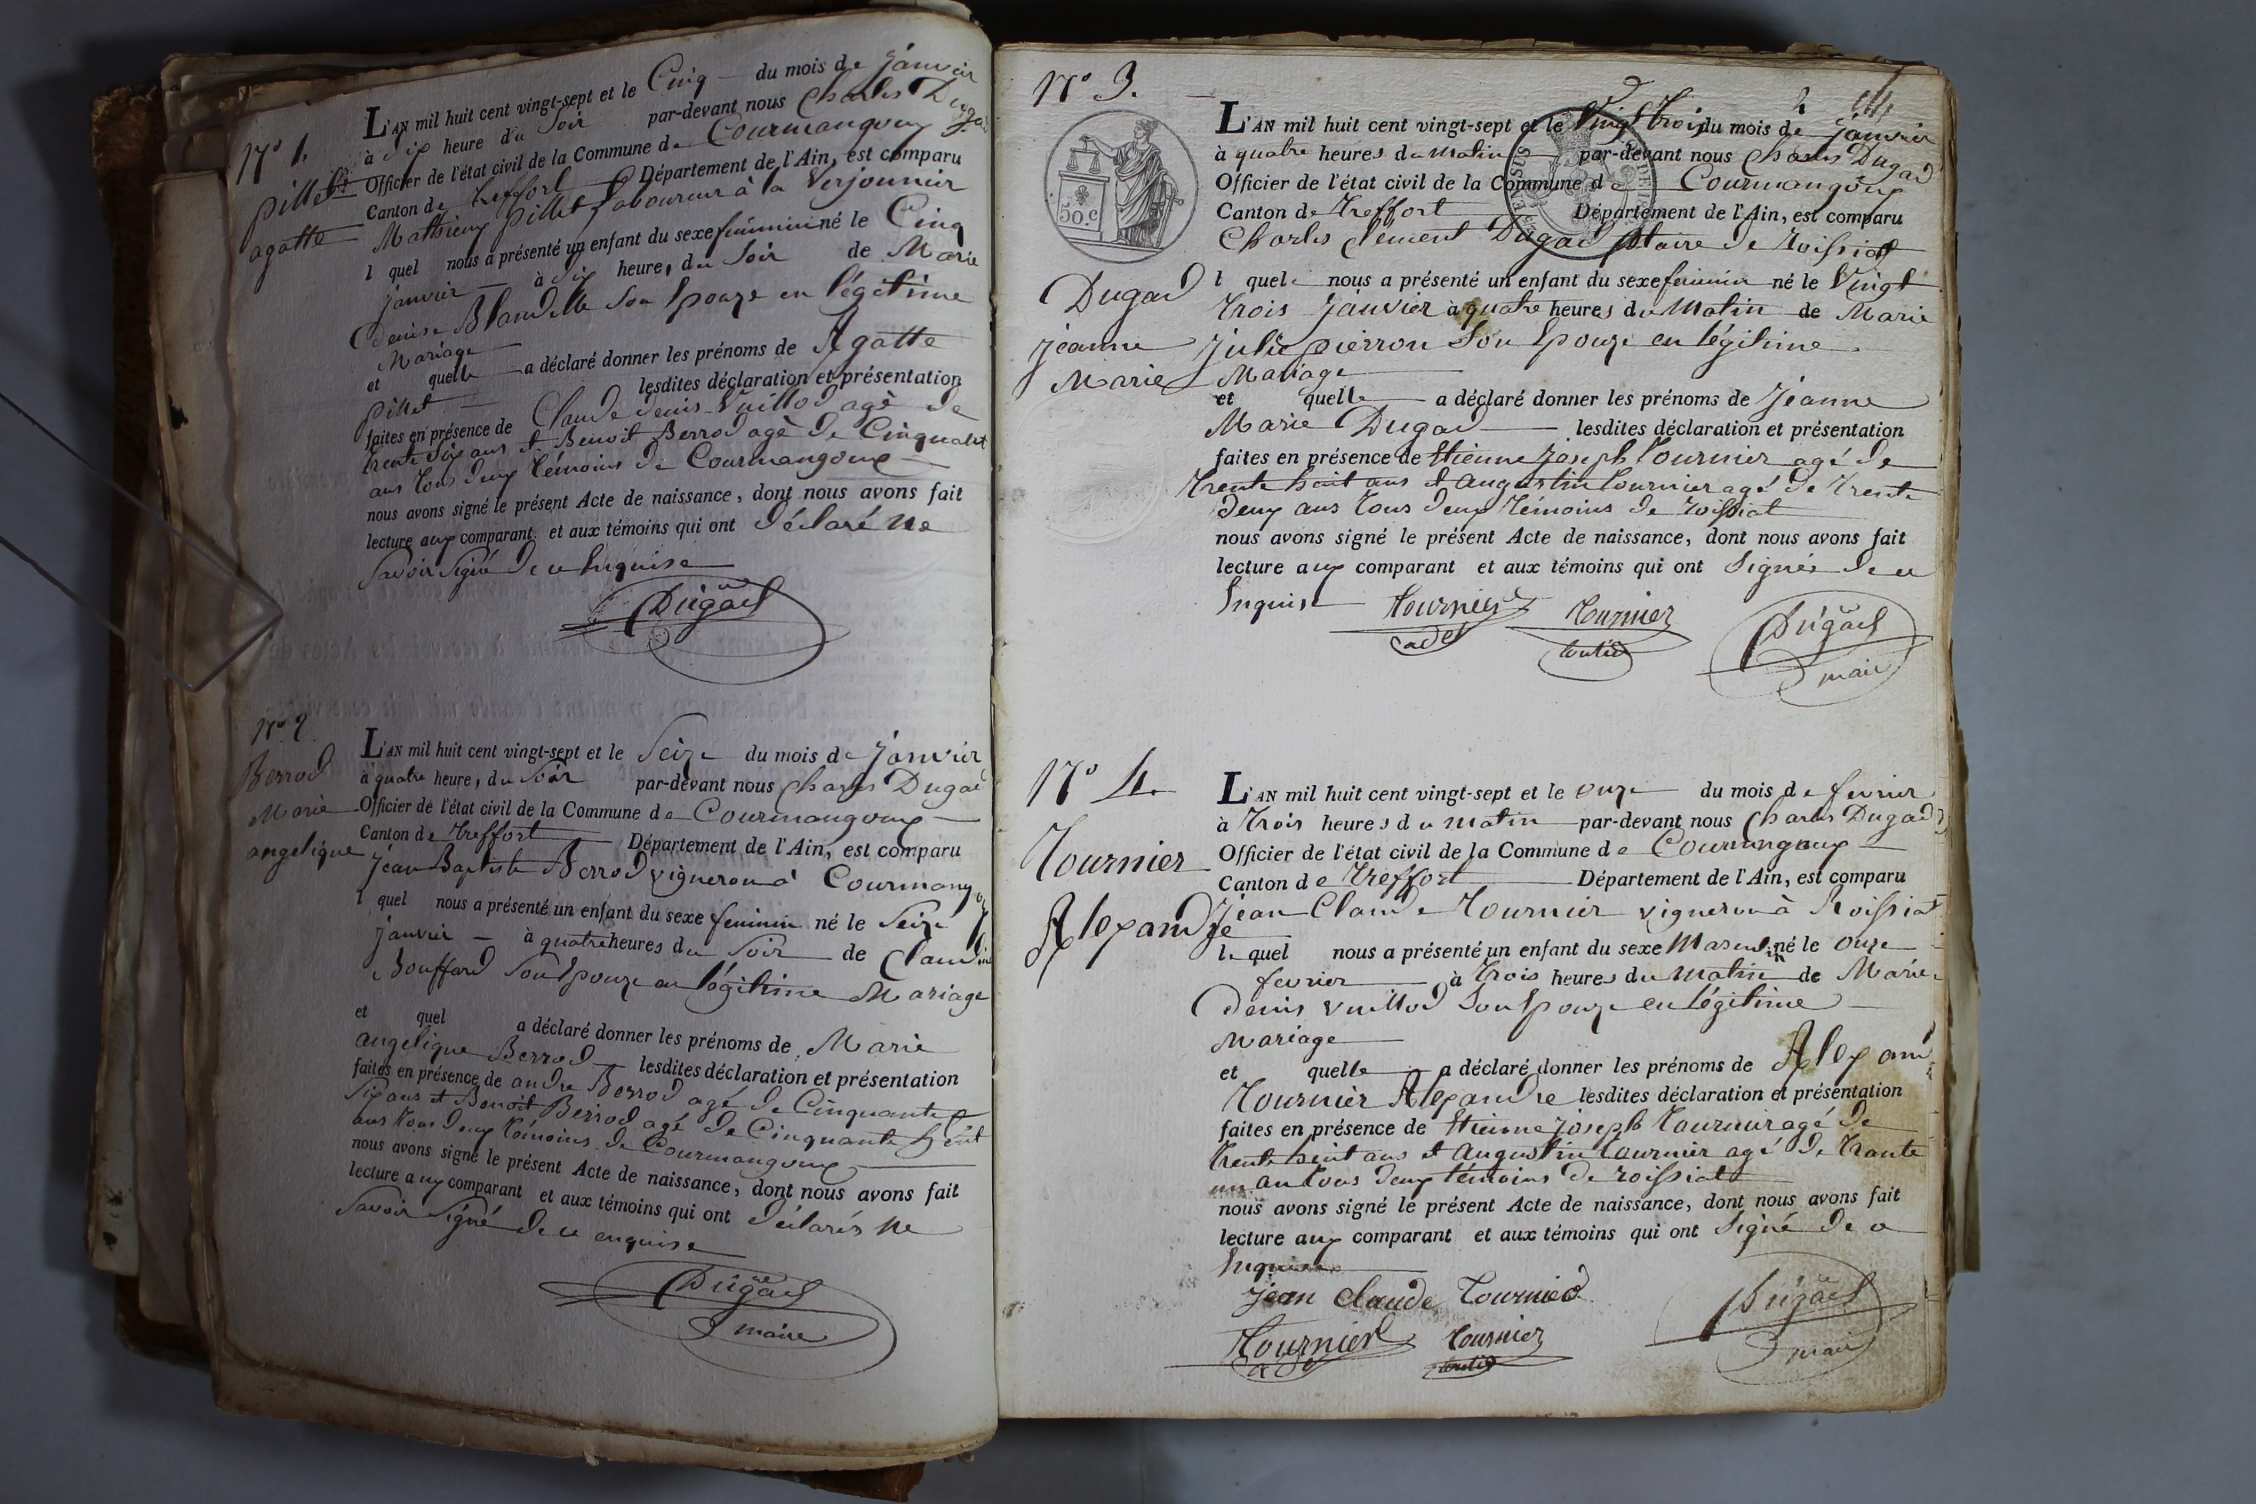 N° 1.
pillet
agatte
L'AN mil huit cent vingt-sept et le Cinq du mois de janvier
à six heure du Soir par-devant nous Charles Dugad
Officier de l'état civil de la Commune de Courmangoux
Canton de treffort Département de l'Ain, est comparu
Mathieux pillet laboureur à la Verjonnier
l quel nous a présenté un enfant du sexe féminin né le Cinq
janvier à six heures du Soir de Marie
denise Blandelle Son Epouze en légitime
Mariage
et quelle a déclaré donner les prénoms de Agatte
pillet lesdites déclaration et présentation
faites en présence de Claude denis Vuillod agé de
trente Six ans et Benoit Berrod agé de Cinquante
ans tous deux témoins de Courmangoux
nous avons signé le présent Acte de naissance, dont nous avons fait
lecture aux comparant et aux témoins qui ont déclaré ne
Savoir Signé de ce Enquise
Dugad
N° 2
Berrod
Marie
angelique
L'AN mil huit cent vingt-sept et le Seize du mois de janvier
à quatre heures du Soir par-devant nous Charles Dugad
Officier de l'état civil de la Commune de Courmangoux
Canton de treffort Département de l'Ain, est comparu
jean Baptiste Berrod vigneron à Courmangoux
l quel nous a présenté un enfant du sexe feminin né le Seize
janvier à quatre heures du Soir de Claudine
Bouffard Son Epouze en légitime Mariage
et quel a déclaré donner les prénoms de Marie
angelique Berrod lesdites déclaration et présentation
faites en présence de andre Berrod agé de Cinquante
Six ans et Benoit Berrod agé de Cinquante huit
ans tous deux témoins de Courmangoux
nous avons signé le présent Acte de naissance, dont nous avons fait
lecture aux comparant et aux témoins qui ont déclarés ne
Savoir Signé de ce enquise
Dugad
maire
N° 3.
2
50.c
Dugad
jeanne
Marie
L'AN mil huit cent vingt-sept et le Vingt trois du mois de janvier
à quatre heures du matin par-devant nous Charles Dugad
Officier de l'état civil de la Commune de Courmangoux
Canton de treffort Département de l'Ain, est comparu
Charles Clement Dugad de roissiat
l quel nous a présenté un enfant du sexe feminin né le Vingt
trois janvier à quatre heures du Matin de Marie
julie pierron Son Epouze en légitime
Mariage
et quelle a déclaré donner les prénoms de jeanne
Marie Dugad lesdites déclaration et présentation
faites en présence de Etienne joseph tournier agé de
trente huit ans et augustin tournier agé de trente
deux ans tous deux témoins de roissiat
nous avons signé le présent Acte de naissance, dont nous avons fait
lecture aux comparant et aux témoins qui ont Signés de ce
Enquise
tournier tournier Dugad
cadet maire
N° 4.
Tournier
Alexandre
L'AN mil huit cent vingt-sept et le onze du mois de fevrier
à trois heures du matin par-devant nous Charles Dugad
Officier de l'état civil de la Commune de Courmangoux
Canton de treffort Département de l'Ain, est comparu
jean Claude Tournier vigneron à Roissiat
le quel nous a présenté un enfant du sexe Masculin né le onze
fevrier à trois heures du matin de Marie
denis vuillod Son Epouze en légitime
Mariage
et quelle a déclaré donner les prénoms de
Tournier Alexandre lesdites déclaration et présentation
faites en présence de Etienne joseph tournier agé de
trente huit ans et augustin tournier agé de trante
un an tous deux témoins de roissiat
nous avons signé le présent Acte de naissance, dont nous avons fait
lecture aux comparant et aux témoins qui ont Signé de ce
Enquise
jean claude tournier Dugad
tournier tournier maire